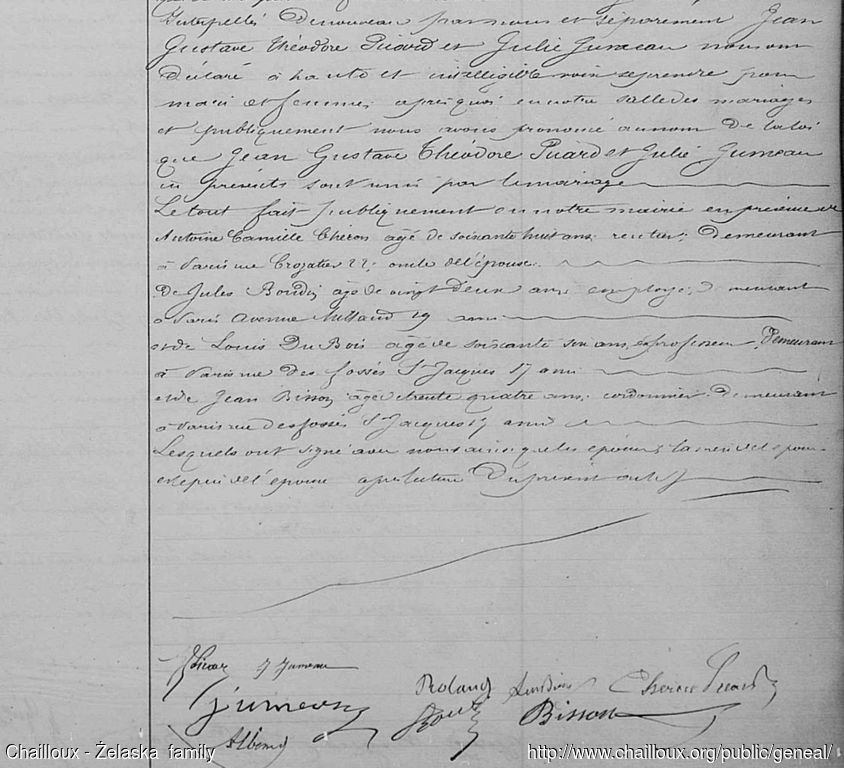 Interpellés denouveau par nous et séparement Jean
Gustave Théodore Picard et Julie Jumeau nous ont
déclaré à haute et intelligible voix se prendre pour
mari et femme, après quoi en notre salle des mariages
et publiquement nous avons prononcé au nom de la loi
que Jean Gustave Théodore Picard et Julie Jumeau
ici présents sont unis par le mariage
Le tout fait publiquement en notre mairie en présence de
Antoine Camille Chéron âgé de soixante huit ans, rentier, demeurant
à Paris rue Crozatier 22, oncle de l'épouse.
De Jules Bordin âgé de vingt deux ans, employé, demeurant
à Paris Avenue 19 ami
et de Louis DuBois âgé de soixante six ans, professeur, demeurant
à Paris rue des fossés St Jacques 17 ami
et de Jean Bisson âgé de trente quatre ans, cordonnier demeurant
à Paris rue des fossés St Jacques 17 ami
Lesquels ont signé avec nous ainsi que les époux, la mère de l'époux
et le père de l'épouse après lecture du présent acte
Picard J Jumeau
Roland Cheron Picard
Jumeau Bisson
Chailloux - Želaska family http://www.chailloux.org/public/geneal/